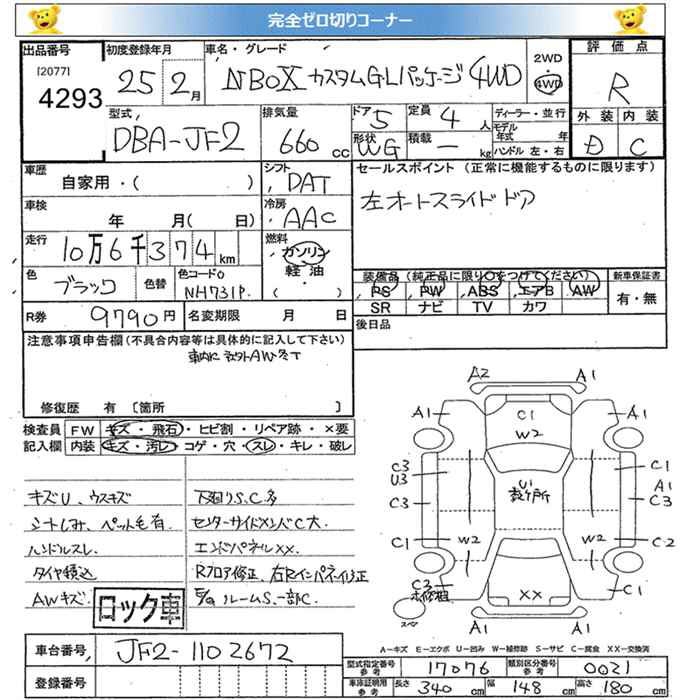 完全ゼロ切りコーナー
出品番号 初度登録年月 車名・グレード 2WD 4WD 評価点
[2077] 4293 25年2月 NBOX カスタムGLパッケージ 4WD R
型式 排気量 ドア 定員 ディーラー・並行 外装 内装
DBA-JF2 660cc 5 4人 モデル年式 年 D C
形状 WG 積載 - kg ハンドル 左・右
車歴 シフト セールスポイント(正常に機能するものに限ります)
自家用・( ) DAT 左オートスライドドア
車検 冷房
年 月(日) AAC
走行 燃料
10万6千374km ガソリン
軽油
( )
色 ブラック 色替 色コードNO NH731P
装備品(純正品に限り○をつけてください) 新車保証書
PS PW ABS エアB AW 有・無
SR ナビ TV カワ
R券 9790円 名変期限 月 日 後日品
注意事項申告欄(不具合内容等は具体的に記入して下さい)
車内に AW
修復歴 有 〔箇所 〕
検査員 FW キズ・飛石・ヒビ割・リペア跡・×要
記入欄 内装 キズ・汚レ・コゲ・穴・スレ・キレ・破レ
キズU、ウスキズ 下廻りS.C多
シートしみ、ペット毛有. センターサイドメンバC大
ハンドルスレ. エンドパネルXX.
タイヤ積込 Rフロア修正、右Rインパネ修正
AWキズ ロック車 ルームS.一部C.
A2 A1
A1 C1 A1
W2
C3 U3 U1 C1
C3 数ヶ所 A1 C3
C1 W2 W2 C2
C3 XX C1
スペ
A1 A1
A-キズ E-エクボ U-凹み W-補修跡 S-サビ C-腐食 XX-交換済
車台番号 JF2-1102672
型式指定番号 参考 17076 類別区分番号 参考 0021
登録番号
車庫証明用 参考 長さ 340cm 幅 148cm 高さ 180cm